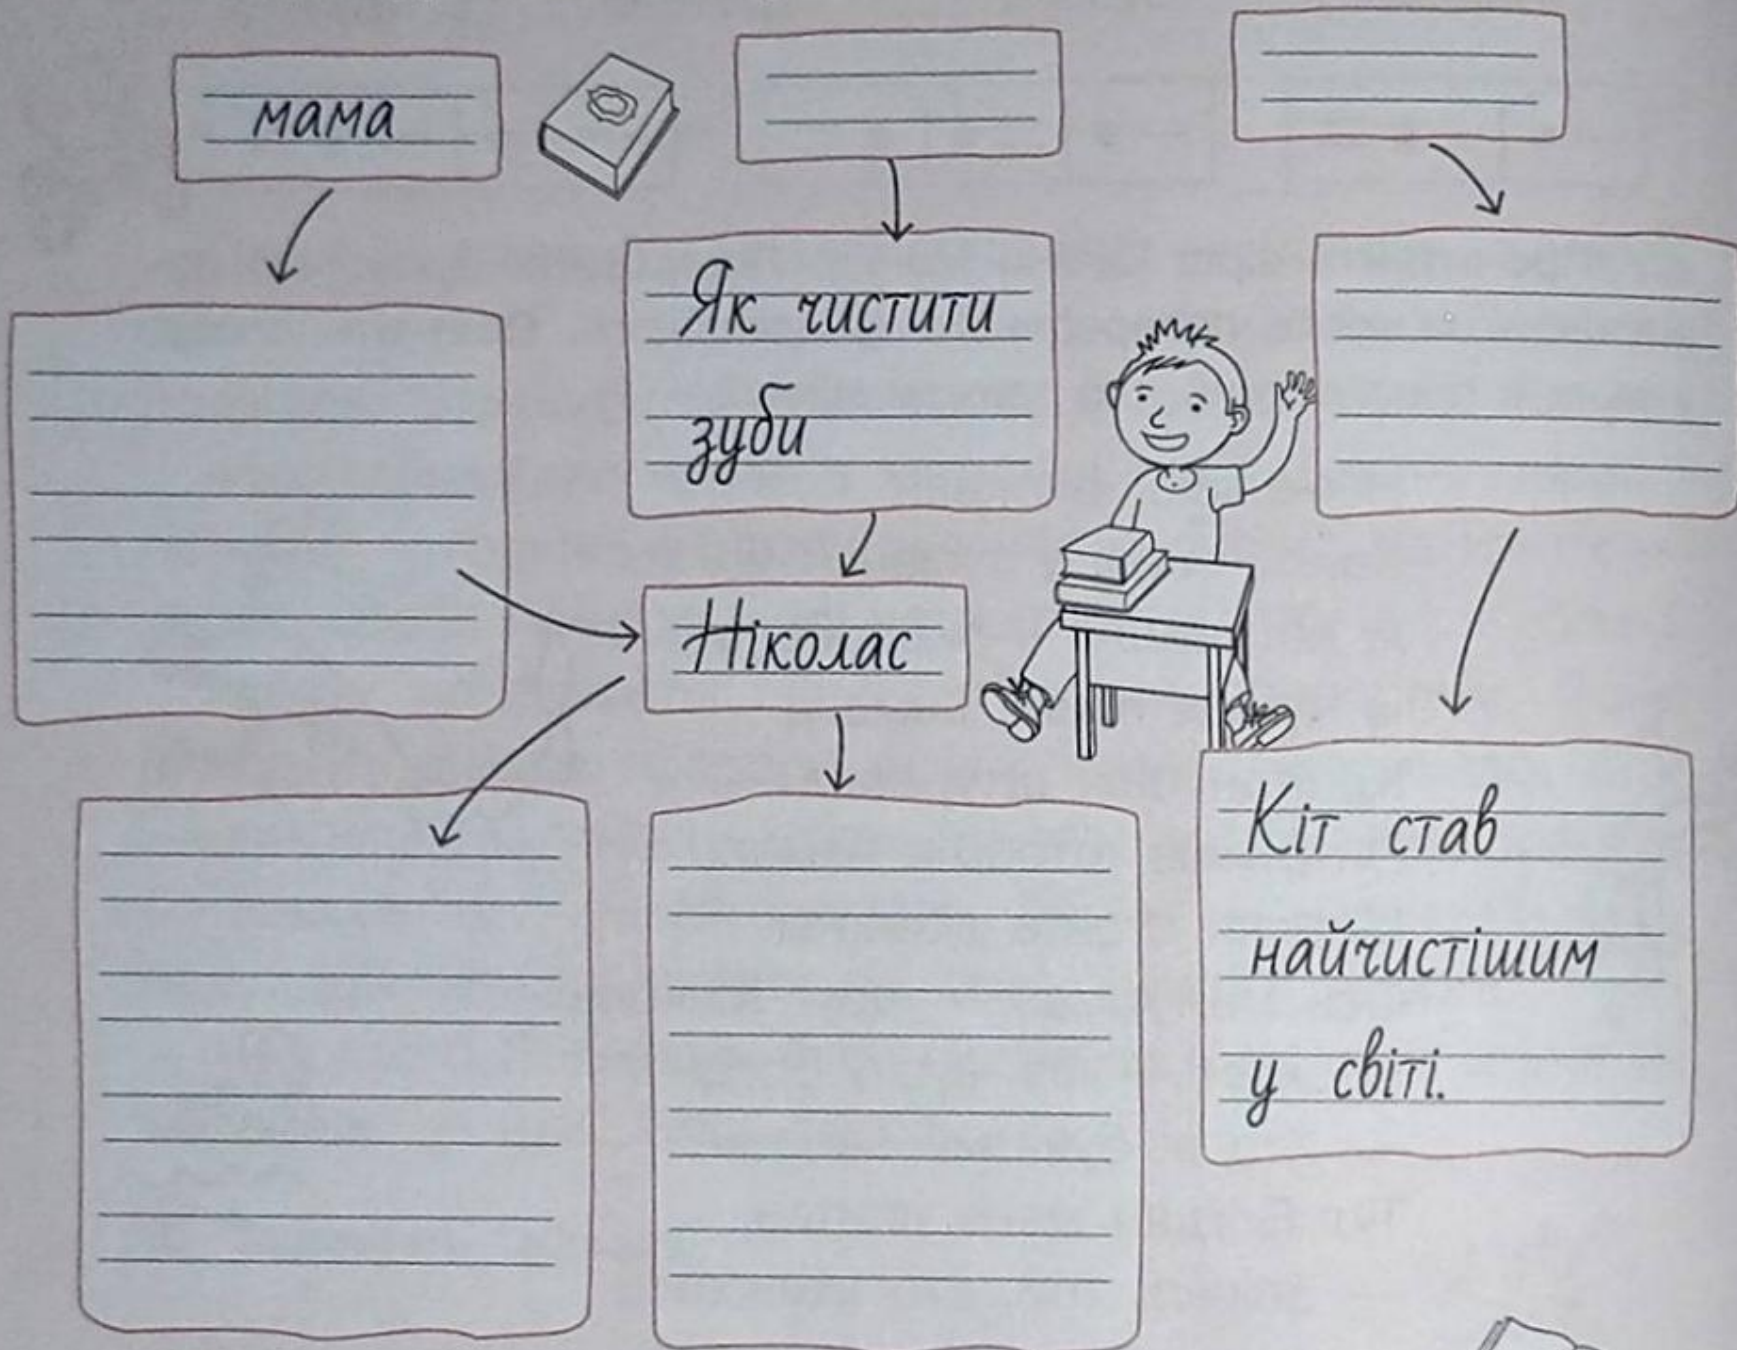 мама
Як чистити
зуби
Ніколас
Кіт став
найчистішим
у світі.